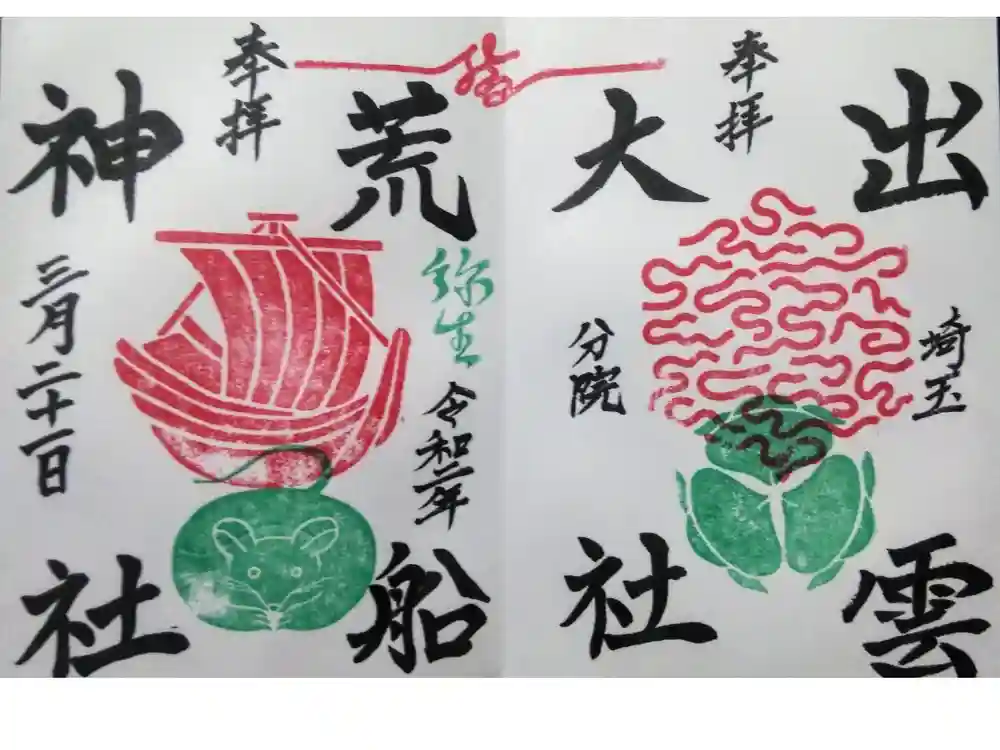 奉拝
出雲
大社
埼玉
分院
結
奉拝
荒船
神社
弥生
令和二年
三月二十一日